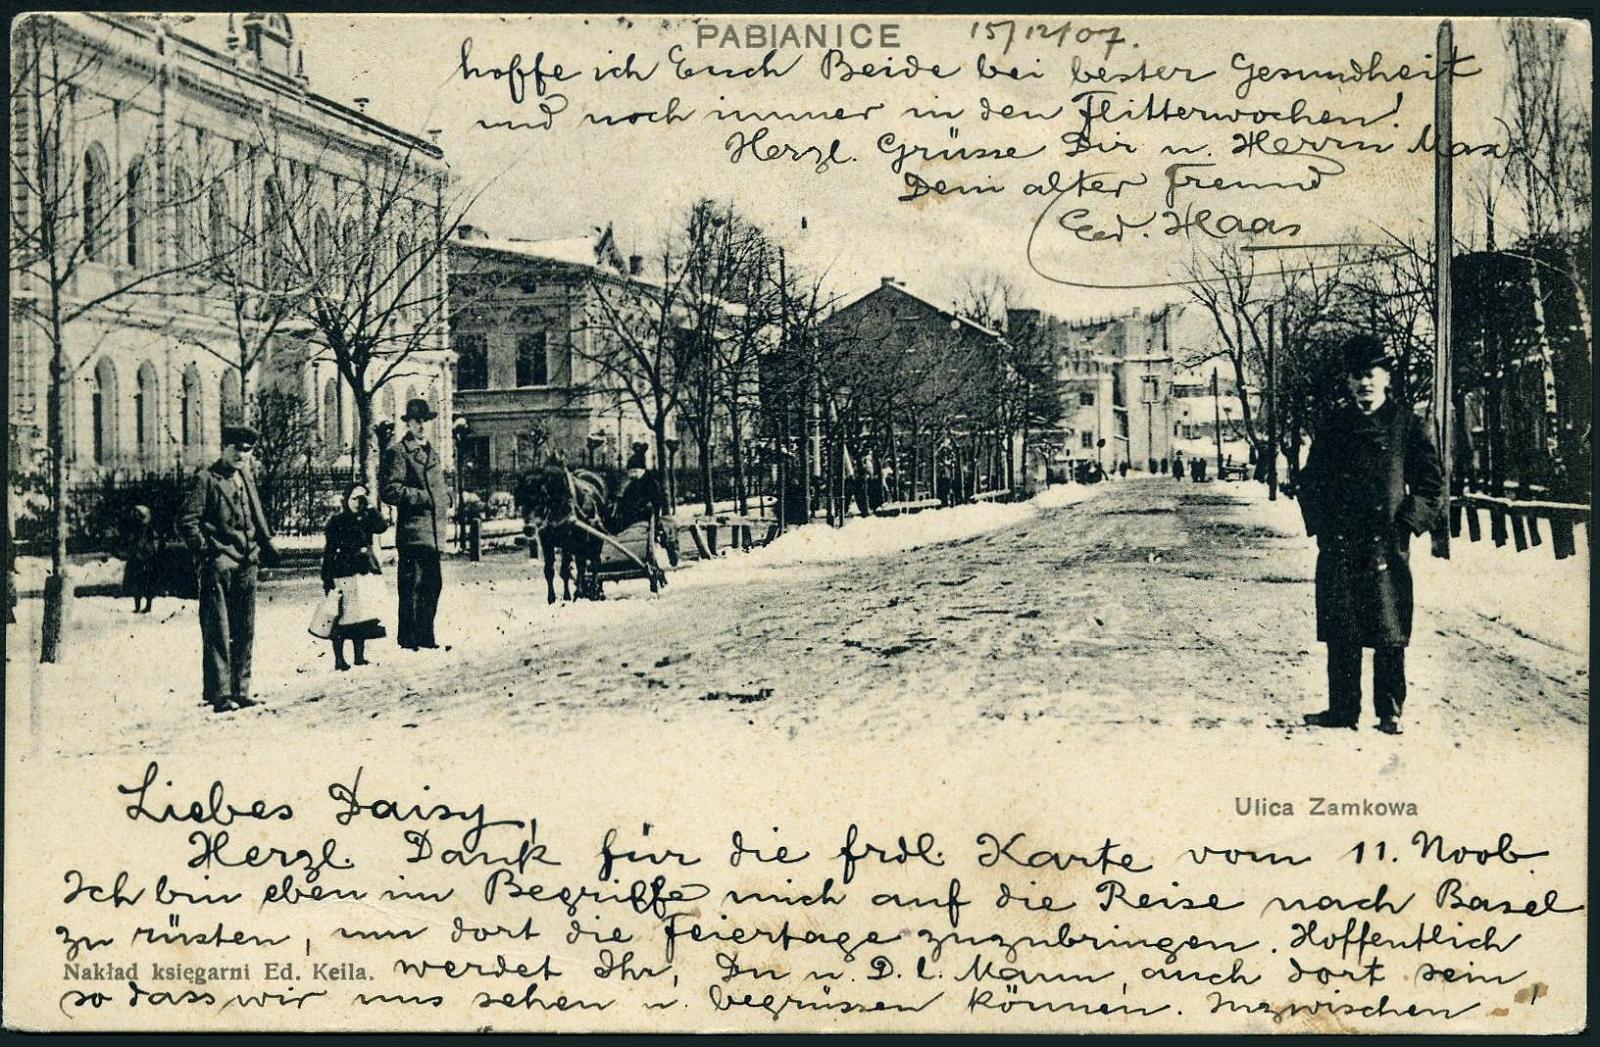 PABIANICE 15/12/07.
hoffe ich Euch Beide bei bester Gesundheit
und noch immer in den Flitterwochen!
Herzl. Grüsse Dir u. Herrn Max
Dein alter Freund
Ed. Haas
Ulica Zamkowa
Liebes Daisy,
Herzl. Dank für die frdl. Karte vom 11. Novb.
Ich bin eben im Begriffe mich auf die Reise nach Basel
zu rüsten, um dort die Feiertage zuzubringen. Hoffentlich
Nakład księgarni Ed. Keila. werdet Ihr, Du u. D. l. Mann, auch dort sein,
so dass wir uns sehen u. begrüssen können. Inzwischen